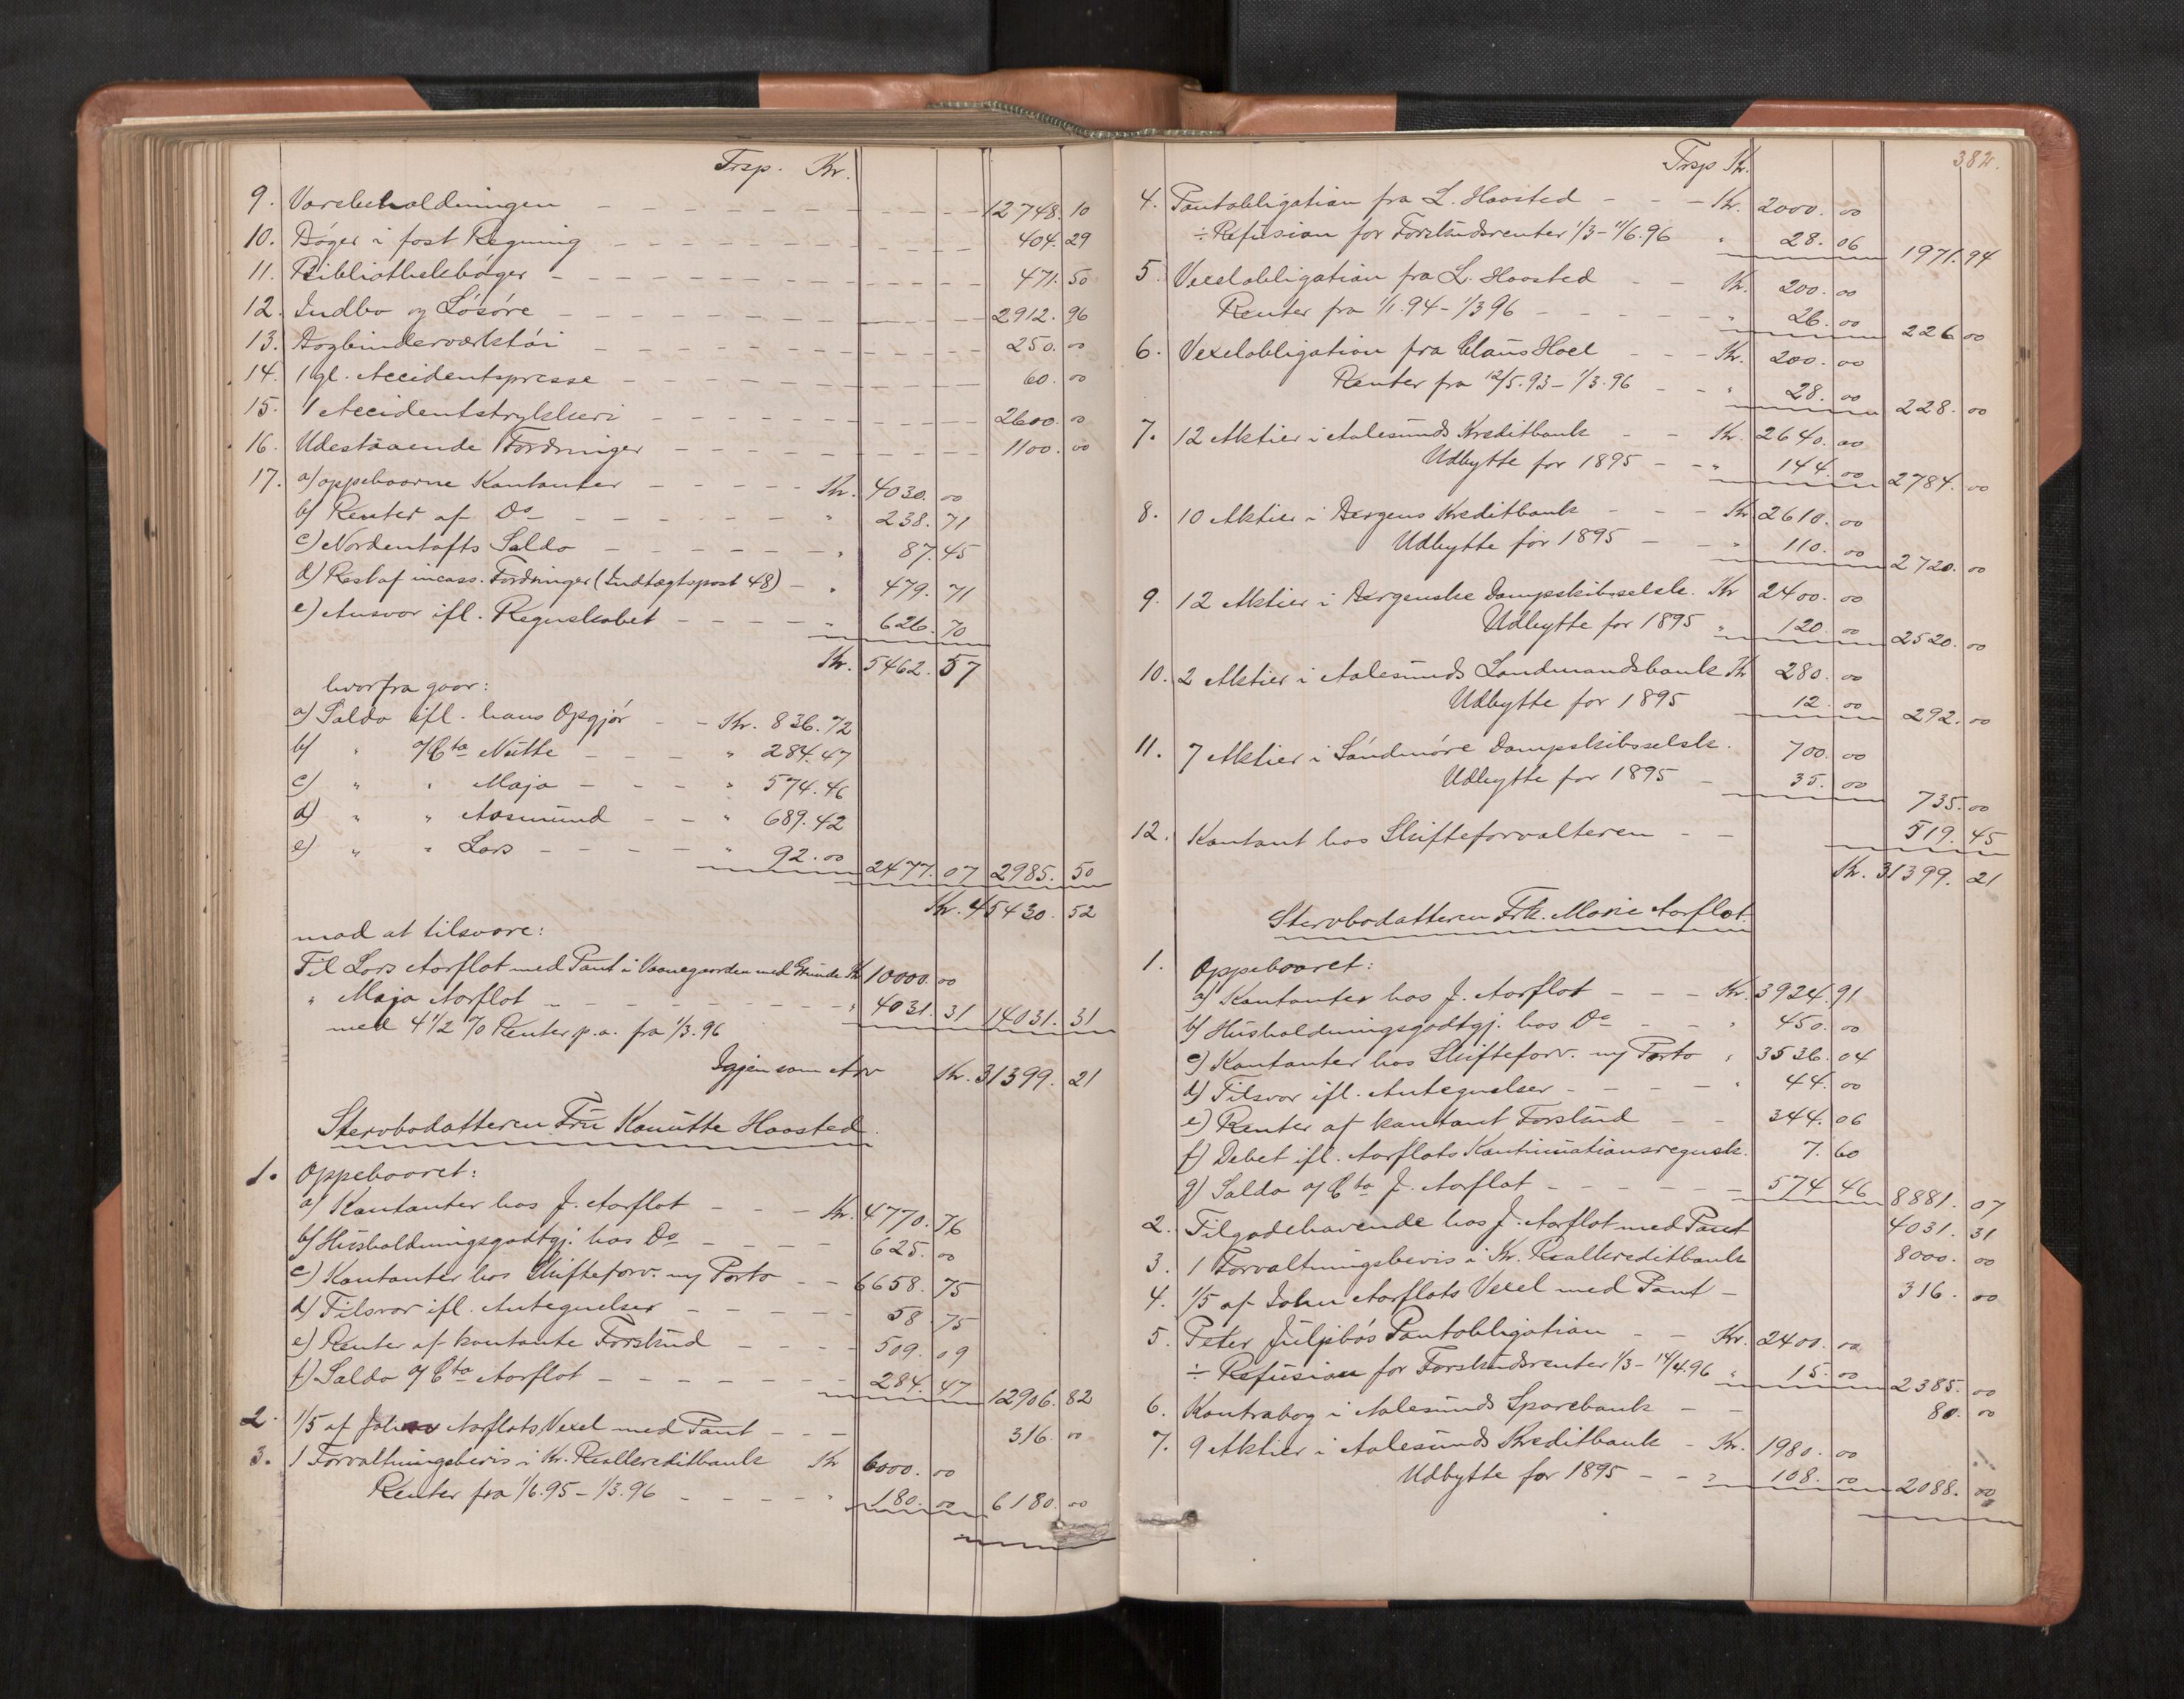 Trsp. Kr.
9. Varebeholdningen 12748. 10
10. Bøger i fast Regning 404. 29
11. Bibliothekbøger 471. 50
12. Indbo og Løsøre 2912. 96
13. Bogbinderværktøi 250. 00
14. 1 gl. Accidentspresse 60. 00
15. 1 Accidentstrykkeri 2600. 00
16. Udestaaende Fordringer 1100. 00
17. a) oppebaarne Kontanter Kr. 4030. 00
b) Renter af Do " 238. 71
c) Nordentofts Saldo " 87. 45
d) Rest af incass. Fordringer (Indtægtspost 48) " 479. 71
e) Ansvar ifl. Regnskabet " 626. 70
Kr. 5462. 57
hvorfra gaar:
a) Saldo ifl. hans Opgjør Kr. 836. 72
b) " a/Cta Nutte " 284. 47
c) " " Maja " 574. 46
d) " " Aasmund " 689. 42
e) " " Lars " 92. 00 2477. 07 2985. 50
Kr. 45430. 52
mod at tilsvare:
Til Lars Aarflot med Pant i Vaanegaarden med Grunde Kr 10000. 00
" Maja Aarflot " 4031. 31 14031. 31
med 4 1/2 % Renter p.a. fra 1/3. 96
Igjen som Arv Kr. 31399. 21
Stervbodatteren Fru Kanutte Haasted.
1. Oppebaaret:
a) Kontanter hos J. Aarflot Kr. 4770. 76
b) Husholdningsgodtgj. hos Do 625. 00
c) Kontanter hos Skifteforv. og Porto 6658. 75
d) Tilsvar ifl. Antegnelser 58. 75
e) Renter af kontante Forskud 509. 09
f) Saldo a/Cta Aarflot 284. 47 12906. 82
2. 1/5 af Johan Aarflots Vexel med Pant 316. 00
3. 1 Forvaltningsbevis i Kr. Realkreditbank Kr 6000. 00
Renter fra 1/6. 95 – 1/3. 96 " 180. 00 6180. 00
382.
Trsp Kr.
4. Pantobligation fra L. Haasted Kr. 2000. 00
÷ Refusion for Forskudsrenter 1/3 – 11/6. 96 " 28. 06 1971. 94
5. Vexelobligation fra L. Haasted Kr. 200. 00
Renter fra 1/1. 94 – 1/3 96 " 26. 00 226 00
6. Vexelobligation fra Claus Hoel Kr. 200. 00
Renter fra 12/5. 93 – 1/3. 96 " 28. 00 228. 00
7. 12 Aktier i Aalesunds Kreditbank Kr. 2640. 00
Udbytte for 1895 " 144. 00 2784. 00
8. 10 Aktier i Bergens Kreditbank Kr 2610. 00
Udbytte for 1895 " 110. 00 2720. 00
9. 12 Aktier i Bergenske Dampskibsselsk. Kr 2400. 00
Udbytte for 1895 " 120. 00 2520. 00
10. 2 Aktier i Aalesunds Landmandsbank Kr 280. 00
Udbytte for 1895 12. 00 292. 00
11. 7 Aktier i Søndmøre Dampskibsselsk. 700. 00
Udbytte for 1895 35. 00 735. 00
12. Kontant hos Skifteforvalteren 519. 45
Kr. 31399. 21
Stervbodatteren Frk. Marie Aarflot
1. Oppebaaret:
a) Kontanter hos J. Aarflot Kr. 3924. 91
b) Husholdningsgodtgj. hos Do " 450. 00
c) Kontanter hos Skifteforv. og Porto " 3536. 04
d) Tilsvar ifl. Antegnelser " 44. 00
e) Renter af kontant Forskud 344. 06
f) Debet ifl. Aarflots Kontinuationsregnsk. 7. 60
g) Saldo a/Cta J. Aarflot 574 46 8881. 07
2. Tilgodehavende hos J. Aarflot med Pant 4031. 31
3. 1 Forvaltningsbevis i Kr. Realkreditbank 8000. 00
4. 1/5 af Johan Aarflots Vexel med Pant 316. 00
5. Peter Juljebøs Pantobligation Kr. 2400. 00
÷ Refusion for Forskudsrenter 1/3 – 14/4 96 " 15. 00 2385. 00
6. Kontrabog i Aalesunds Sparebank 80. 00
7. 9 Aktier i Aalesunds Kreditbank Kr. 1980. 00
Udbytte for 1895 " 108. 00 2088. 00